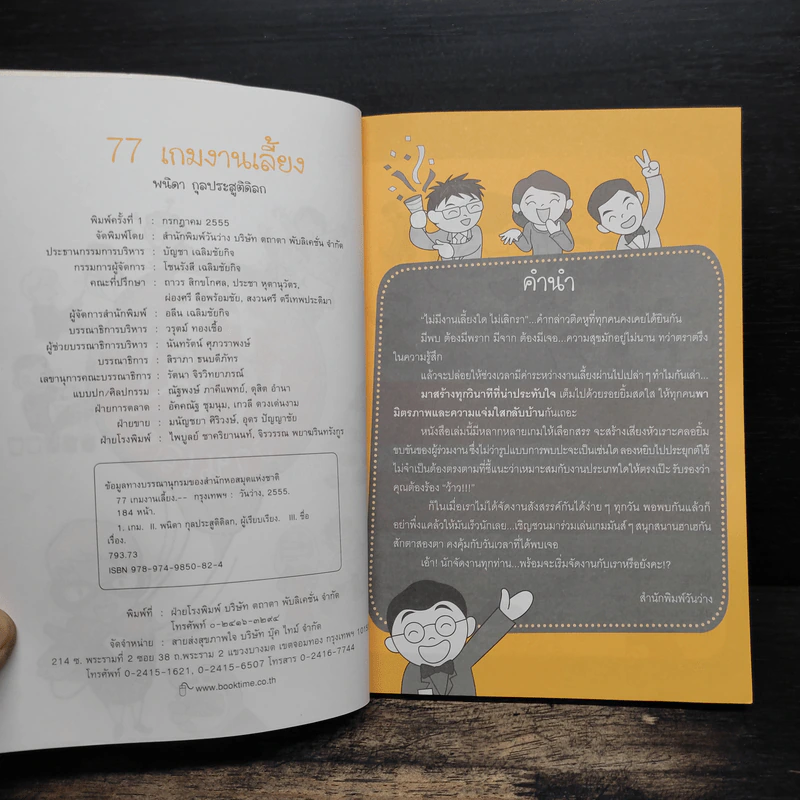 77 เกมงานเลี้ยง
พนิดา กุลประสูติดิลก
พิมพ์ครั้งที่ 1 : กรกฎาคม 2555
จัดพิมพ์โดย : สำนักพิมพ์วันว่าง บริษัท ตถาตา พับลิเคชั่น จำกัด
ประธานกรรมการบริหาร : บัญชา เฉลิมชัยกิจ
กรรมการผู้จัดการ : โชนรังสี เฉลิมชัยกิจ
คณะที่ปรึกษา : ถาวร สิกขโกศล, ประชา หุตานุวัตร,
ผ่องศรี ลือพร้อมชัย, สงวนศรี ตรีเทพประติมา
ผู้จัดการสำนักพิมพ์ : อลีน เฉลิมชัยกิจ
บรรณาธิการบริหาร : วรุตม์ ทองเชื้อ
ผู้ช่วยบรรณาธิการบริหาร : นันทรัตน์ ศุภวราพงษ์
บรรณาธิการ : ลีราภา ธนบดีภัทร
เลขานุการคณะบรรณาธิการ : รัตนา จิรวิทยาภรณ์
แบบปก/ศิลปกรรม : ณัฐพงษ์ ภาคีแพทย์, ดุสิต อำนา
ฝ่ายการตลาด : อัคคณัฐ ชุมนุม, เกวลี ดวงเด่นงาม
ฝ่ายขาย : มนัญชยา ศิริวงษ์, อุดร ปัญญาชัย
ฝ่ายโรงพิมพ์ : ไพบูลย์ ชาคริยานนท์, จิรวรรณ พยาฆรินทรังกูร
ข้อมูลทางบรรณานุกรมของสำนักหอสมุดแห่งชาติ
77 เกมงานเลี้ยง.-- กรุงเทพฯ : วันว่าง, 2555.
184 หน้า.
1. เกม. II. พนิดา กุลประสูติดิลก, ผู้เรียบเรียง. III. ชื่อ
เรื่อง.
793.73
ISBN 978-974-9850-82-4
พิมพ์ที่ : ฝ่ายโรงพิมพ์ บริษัท ตถาตา พับลิเคชั่น จำกัด
โทรศัพท์ ๐-๒๔๑๖-๓๒๙๔
จัดจำหน่าย : สายส่งสุขภาพใจ บริษัท บุ๊ค ไทม์ จำกัด
214 ซ. พระรามที่ 2 ซอย 38 ถ.พระราม 2 แขวงบางมด เขตจอมทอง กรุงเทพฯ
โทรศัพท์ 0-2415-1621, 0-2415-6507 โทรสาร 0-2416-7744
www.booktime.co.th
คำนำ
"ไม่มีงานเลี้ยงใด ไม่เลิกรา"...คำกล่าวติดหูที่ทุกคนคงเคยได้ยินกัน
มีพบ ต้องมีพราก มีจาก ต้องมีเจอ...ความสุขมักอยู่ไม่นาน ทว่าตราตรึง
ในความรู้สึก
แล้วจะปล่อยให้ช่วงเวลามีค่าระหว่างงานเลี้ยงผ่านไปเปล่า ๆ ทำไมกันเล่า...
มาสร้างทุกวินาทีที่น่าประทับใจ เติมไปด้วยรอยยิ้มสดใส ให้ทุกคนพา
มิตรภาพและความแจ่มใสกลับบ้านกันเถอะ
หนังสือเล่มนี้มีหลากหลายเกมให้เลือกสรร จะสร้างเสียงหัวเราะคลอยิ้ม
ขบขันของผู้ร่วมงานซึ่งไม่ว่ารูปแบบการพบปะจะเป็นเช่นใด ลองหยิบไปประยุกต์ใช้
ไม่จำเป็นต้องตรงตามที่ชี้แนะว่าเหมาะสมกับงานประเภทใดให้ตรงเป๊ะ รับรองว่า
คุณต้องร้อง "ว้าว!!!"
ก็ในเมื่อเราไม่ได้จัดงานสังสรรค์กันได้ง่าย ๆ ทุกวัน พอพบกันแล้วก็
อย่าพึ่งแคล้วให้มันเร็วนักเลย...เชิญชวนมาร่วมเล่นเกมมันส์ ๆ สนุกสนานฮาเฮกัน
สักตาสองตา คงคุ้มกับวันเวลาที่ได้พบเจอ
เอ้า! นักจัดงานทุกท่าน...พร้อมจะเริ่มจัดงานกับเราหรือยังคะ!?
สำนักพิมพ์วันว่าง